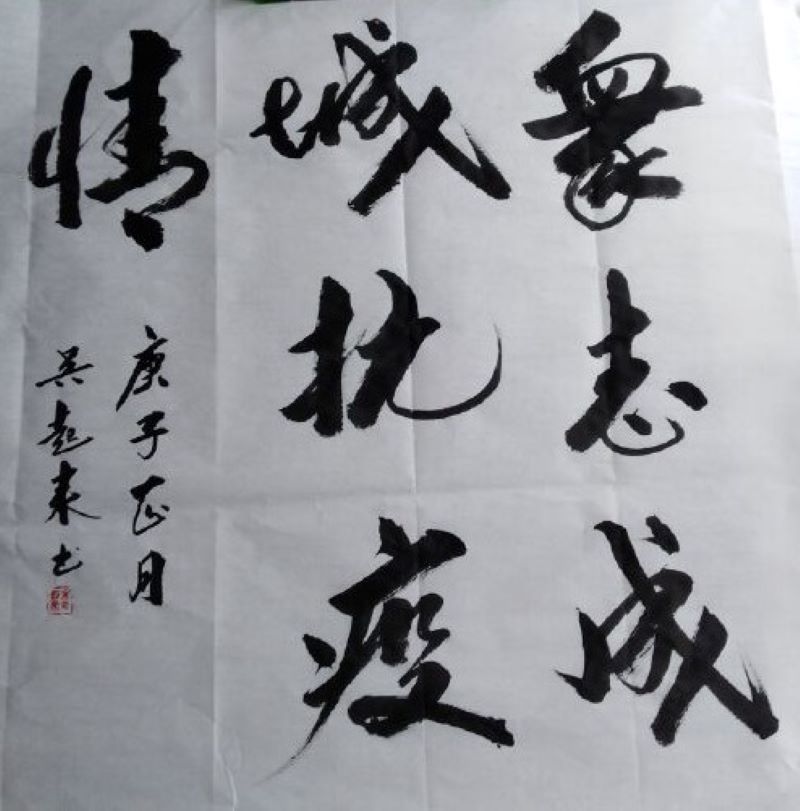 衆志成
城抗疫
情
庚子正月
吴起来书